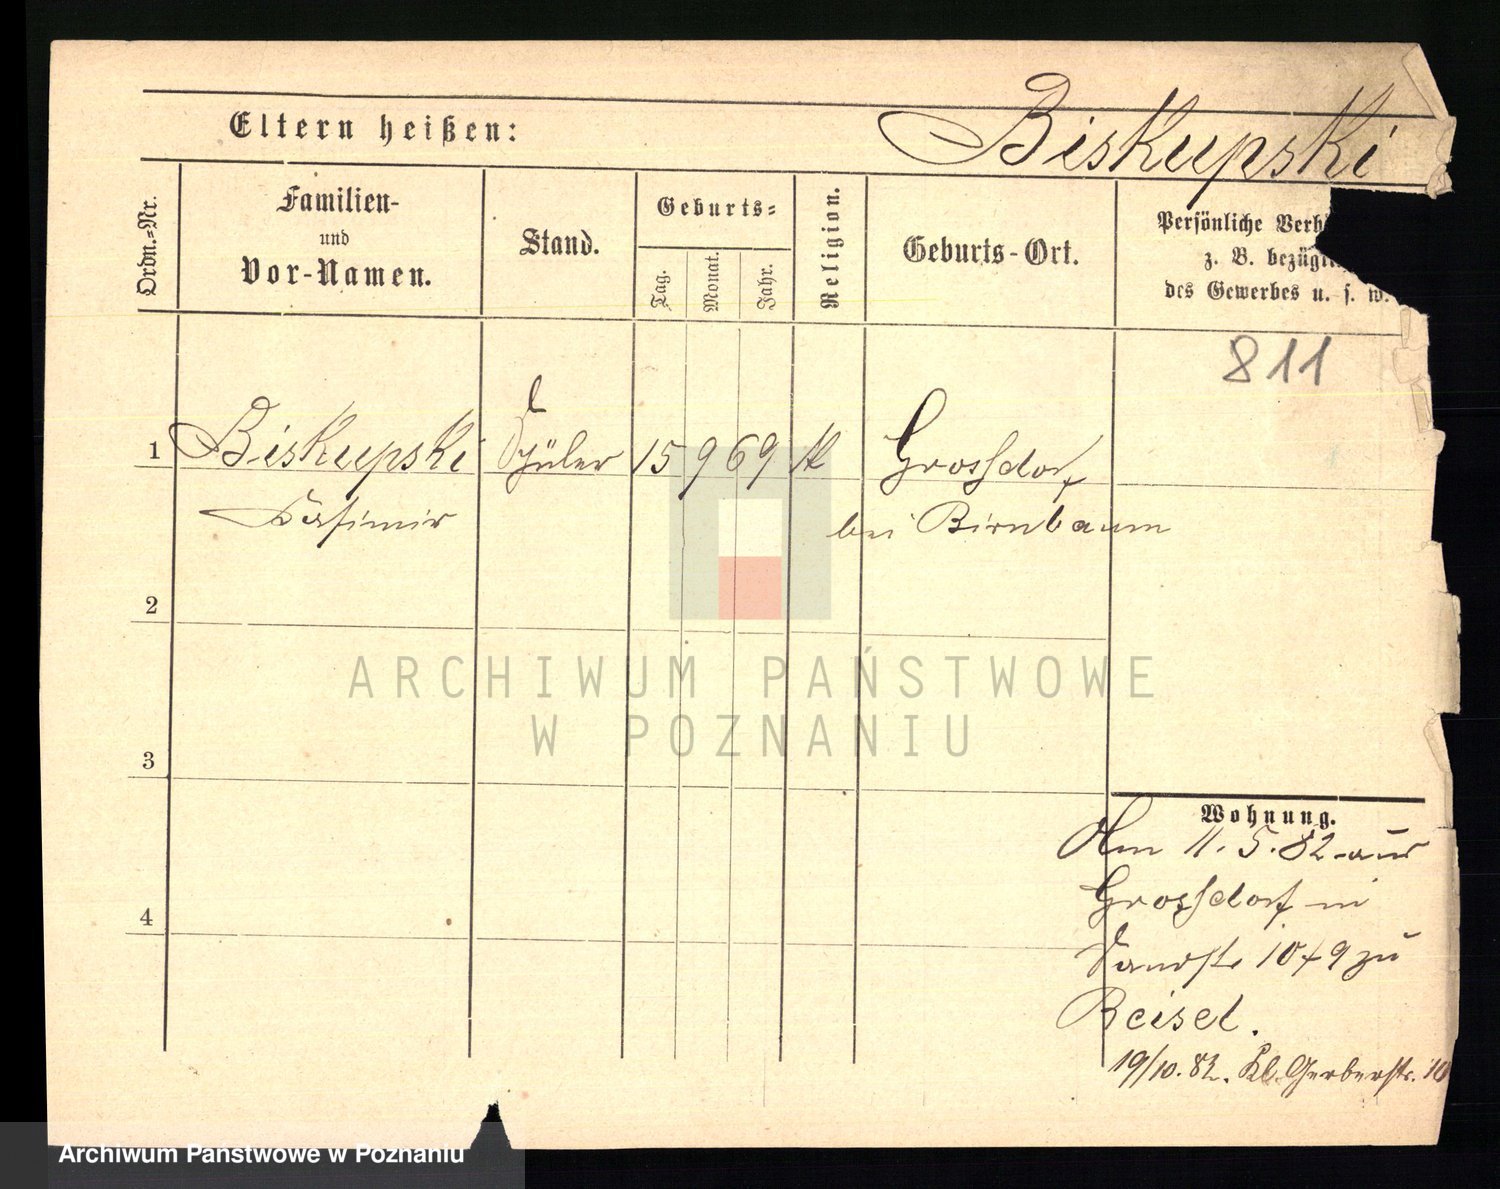 Biskupski
Eltern heißen:
Ordn.-Nr.
Familien-
und
Vor-Namen.
Stand.
Geburts-
Tag.
Monat.
Jahr.
Religion.
Geburts-Ort.
Persönliche
z. B.
des Gewerbes u. s. w.
811
1 Biskupski Schüler 15 9 69 K Grossdorf
Casimir bei Birnbaum
2
3
4
Wohnung.
Am 11. 5. 82 aus
Grossdorf in
Sandstr 10/9 zu
Beisel.
19/10. 82. Kl. Gerberstr. 10
ARCHIWUM PAŃSTWOWE
W POZNANIU
Archiwum Państwowe w Poznaniu